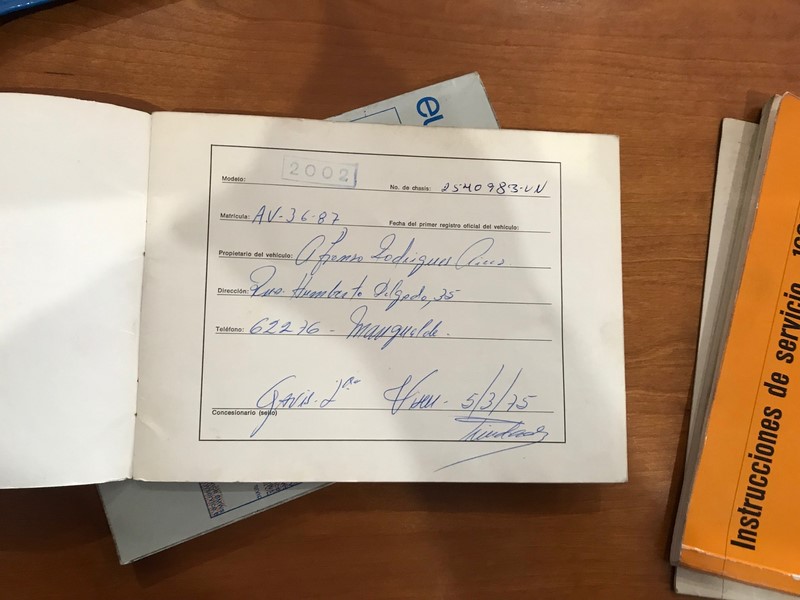 el
Modelo: 2002 No. de chasis: 2540983-VN
Matrícula: AV-36-87 Fecha del primer registro oficial del vehículo:
Propietario del vehículo: Afonso Rodrigues
Dirección: Rua Humberto Delgado, 35
Teléfono: 62276 - Mangualde.
Concesionario (sello) Gavis-L da Viseu 5/3/75
Instrucciones de servicio